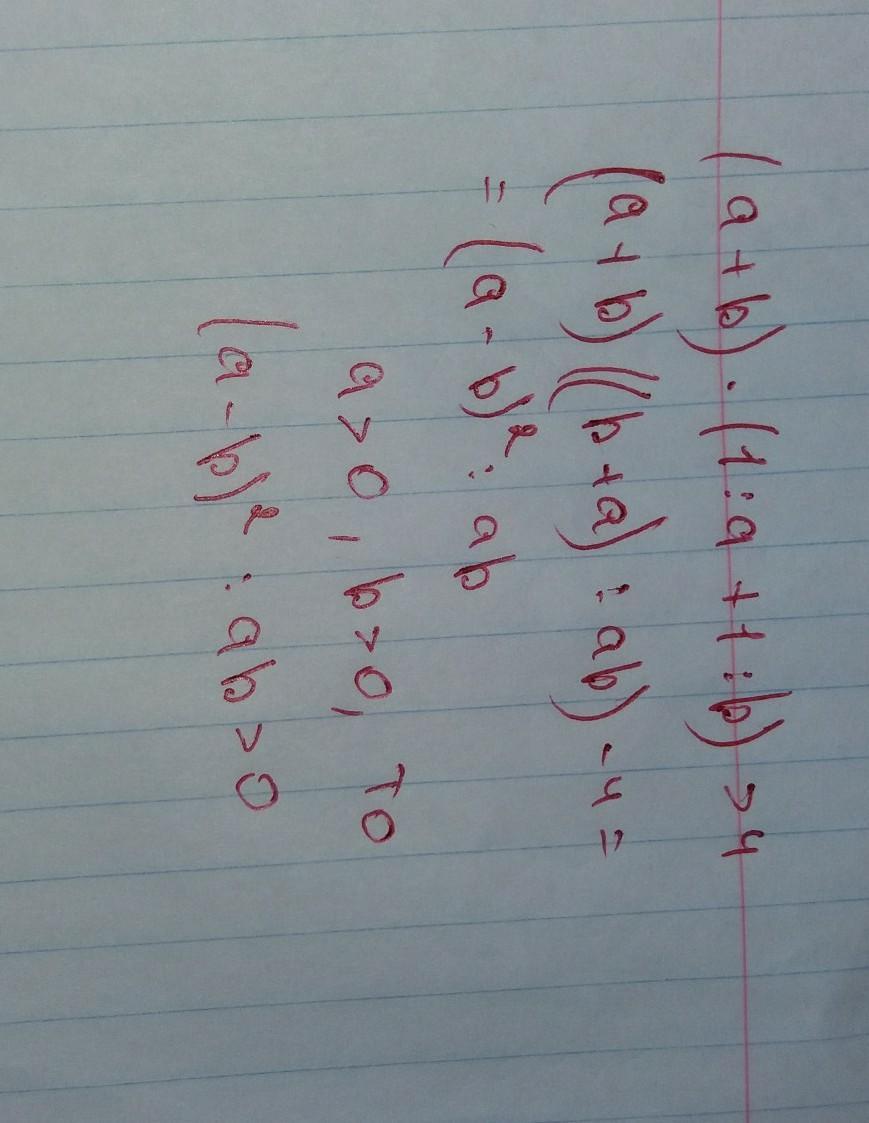 (a+b)·(1:a+1:b)>4
(a+b)((b+a):ab)-4=
=(a-b)²:ab
a>0, b>0, то
(a-b)²:ab>0